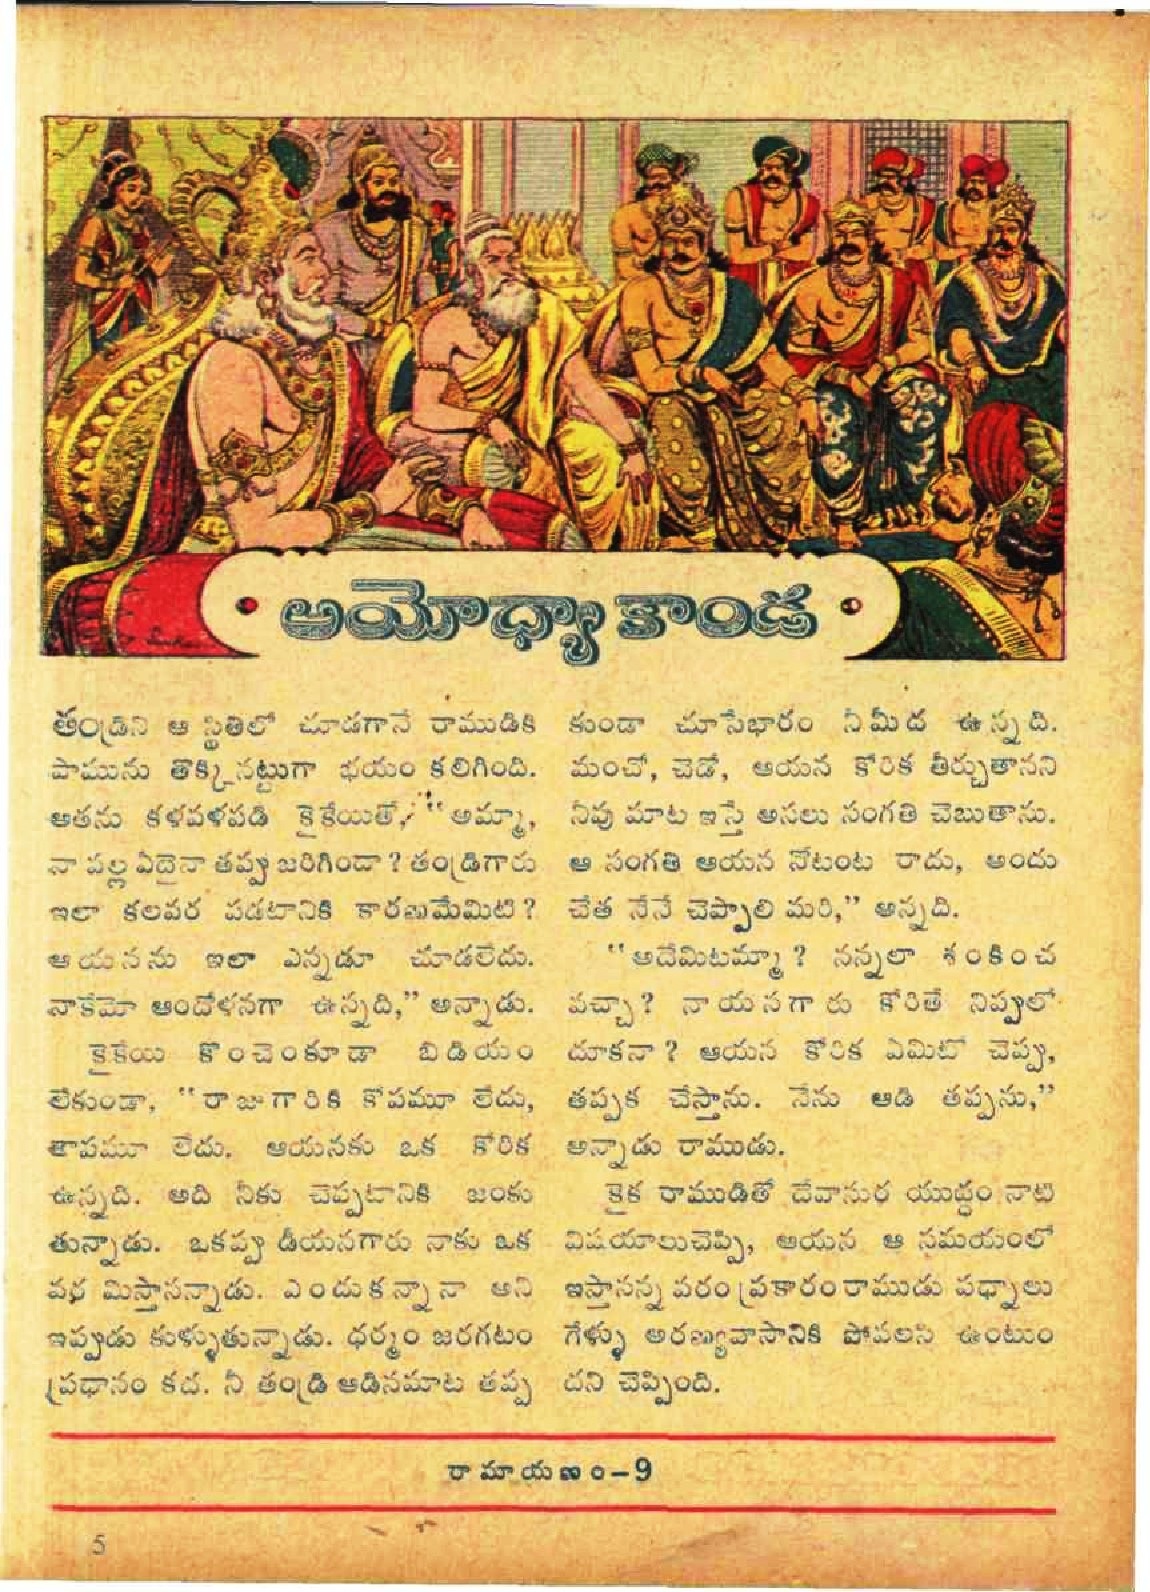 అయోధ్యా కాండ
తండ్రిని ఆ స్థితిలో చూడగానే రాముడికి
పామును తొక్కినట్టుగా భయం కలిగింది.
అతను కళవళపడి కైకేయితో, “అమ్మా,
నా వల్ల ఏదైనా తప్పు జరిగిందా? తండ్రిగారు
ఇలా కలవర పడటానికి కారణమేమిటి?
ఆయనను ఇలా ఎన్నడూ చూడలేదు.
నాకేమో ఆందోళనగా ఉన్నది,” అన్నాడు.
కైకేయి కొంచెంకూడా బిడియం
లేకుండా, “రాజుగారికి కోపమూ లేదు,
తాపమూ లేదు. ఆయనకు ఒక కోరిక
ఉన్నది. అది నీకు చెప్పటానికి జంకు
తున్నాడు. ఒకప్పు డీయనగారు నాకు ఒక
వర మిస్తానన్నాడు. ఎందుకన్నానా అని
ఇప్పుడు కుళ్ళుతున్నాడు. ధర్మం జరగటం
ప్రధానం కద. నీ తండ్రి ఆడినమాట తప్ప
కుండా చూసేభారం నీమీద ఉన్నది.
మంచో, చెడో, ఆయన కోరిక తీర్చుతానని
నీవు మాట ఇస్తే అసలు సంగతి చెబుతాను.
ఆ సంగతి ఆయన నోటంట రాదు, అందు
చేత నేనే చెప్పాలి మరి,” అన్నది.
“అదేమిటమ్మా? నన్నలా శంకించ
వచ్చా? నాయనగారు కోరితే నిప్పులో
దూకనా? ఆయన కోరిక ఏమిటో చెప్పు,
తప్పక చేస్తాను. నేను ఆడి తప్పను,”
అన్నాడు రాముడు.
కైక రాముడితో దేవాసుర యుద్ధం నాటి
విషయాలుచెప్పి, ఆయన ఆ సమయంలో
ఇస్తానన్న వరం ప్రకారం రాముడు పధ్నాలు
గేళ్ళు అరణ్యవాసానికి పోవలసి ఉంటుం
దని చెప్పింది.
రామాయణం-9
5